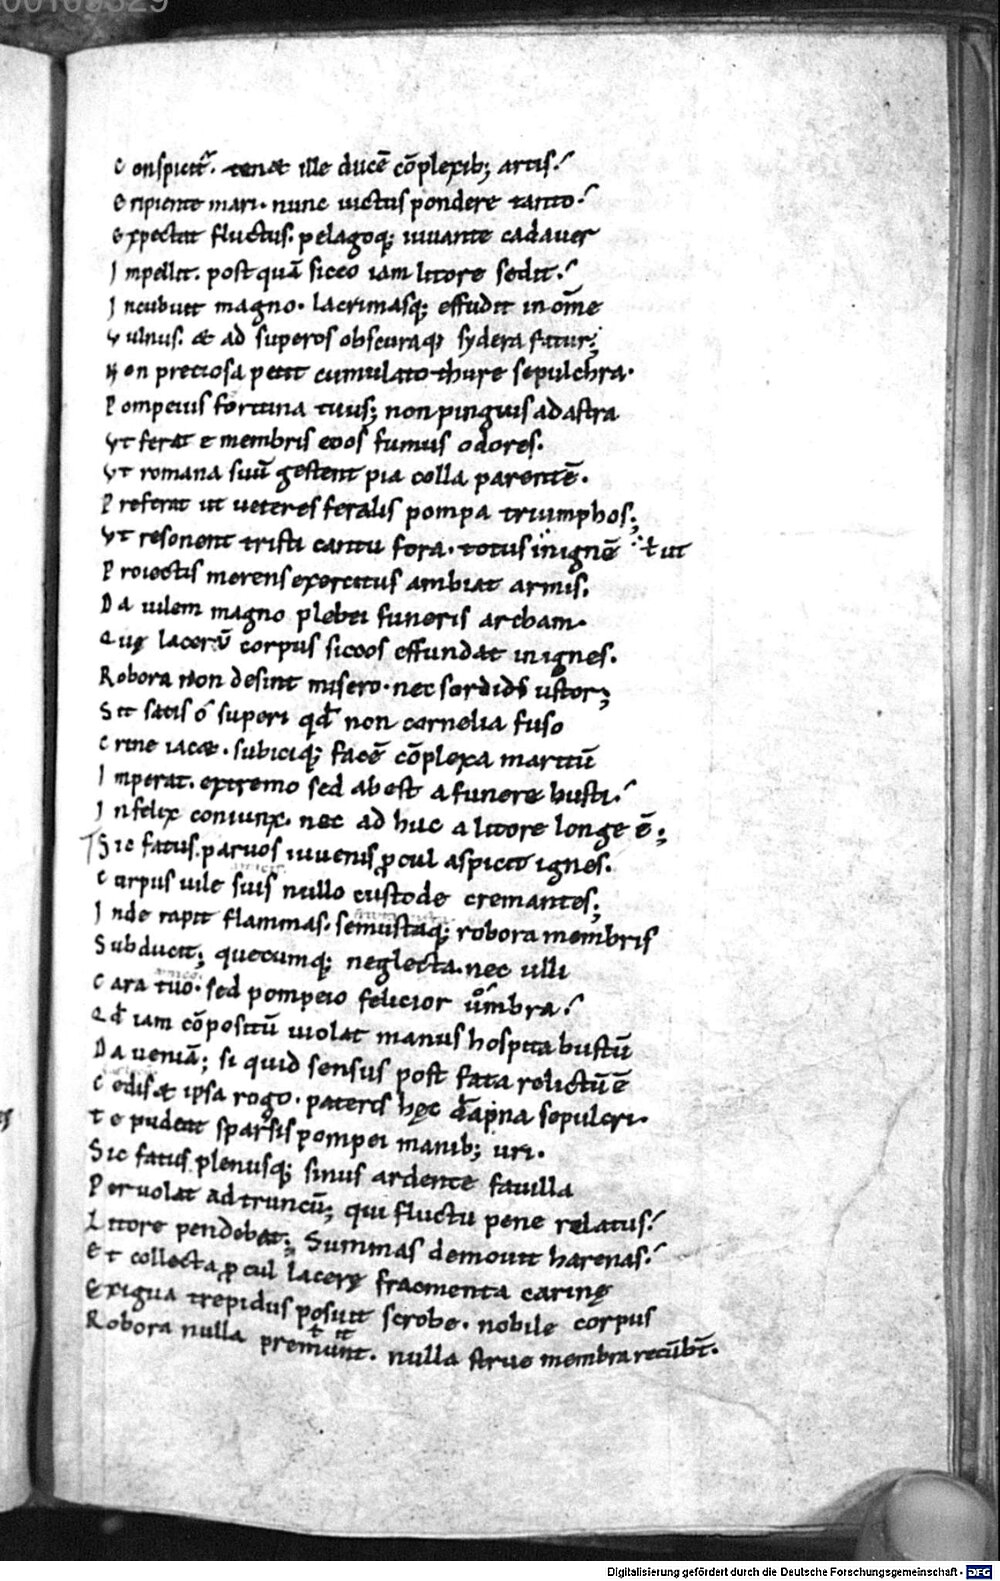 00109329
Conspicitr̄. tenet ille ducē cōplexib; artis.
Eripiente mari. nunc uictus pondere tanto.
Expectat fluctus. pelagoq; iuuante cadauer
Impellit. postquā sicco iam litore sedit.
Incubuit magno. lacrimasq; effudit in om̄e
Vulnus. et ad superos obscuraq; sydera fatur;
Non preciosa petit cumulato thure sepulchra.
Pompeius fortuna tuus; non pinguis ad astra
Vt ferat e membris eoos fumus odores.
Vt romana suū gestent pia colla parentē.
Preferat ut ueteres feralis pompa triumphos;
Vt resonent tristi cantu fora. totus in ignē ł ut
Proiectis merens exercitus ambiat armis.
Da uilem magno plebei funeris archam.
Quę lacerū corpus siccos effundat in ignes.
Robora non desint misero. nec sordidus ustor;
Sit satis ó superi qđ non cornelia fuso
Crine iacet. subiciq; facē cōplexa maritū
Imperat. extremo sed abest a funere busti.
Infelix coniunx. nec ad huc a litore longe ē;
Sic fatus. paruos iuuenis ꝓcul aspicit ignes.
Corpus uile suis nullo custode cremantes;
Inde rapit flammas. semustaq; robora membris
Subducit; quecumq; neglecta. nec ulli
Cara tuo. sed pompeio felicior ůmbra.
Qđ iam cōpositū uiolat manus hospita bustū
Da ueniā; si quid sensus post fata relictū ē
Cedis. et ipsa rogo. pateris hęc dāpna sepulcri.
Te pudeat sparsis pompei manib; uri.
Sic fatus plenusq; sinus ardente fauilla
Peruolat ad truncū; qui fluctu pene relatus.
Litore pendebat; Summas demouit harenas.
Et collecta ꝓcul lacerę fragmenta carinę
Exigua trepidus posuit scrobe. nobile corpus
Robora nulla premunt. nulla strue membra recūbt̄.
Digitalisierung gefördert durch die Deutsche Forschungsgemeinschaft - DFG